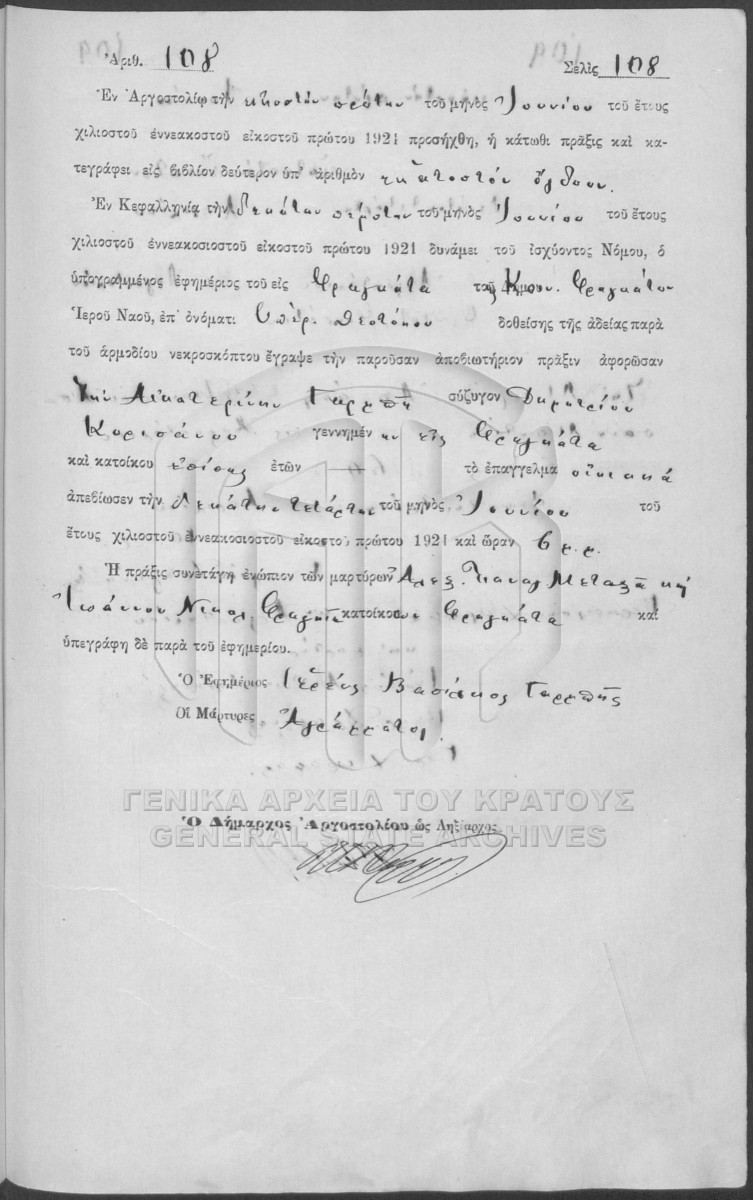 Ἀριθ. 108 Σελὶς 108
Ἐν Ἀργοστολίῳ τὴν εἰκοστὴν πρώτην τοῦ μηνὸς Ἰουνίου τοῦ ἔτους
χιλιοστοῦ ἐννεακοστοῦ εἰκοστοῦ πρώτου 1921 προσήχθη, ἡ κάτωθι πρᾶξις καὶ κα-
τεγράφει εἰς βιβλίον δεύτερον ὑπ' ἀριθμὸν ἑκατοστὸν ὄγδοον.
Ἐν Κεφαλληνίᾳ τὴν δεκάτην πέμπτην τοῦ μηνὸς Ἰουνίου τοῦ ἔτους
χιλιοστοῦ ἐννεακοσιοστοῦ εἰκοστοῦ πρώτου 1921 δυνάμει τοῦ ἰσχύοντος Νόμου, ὁ
ὑπογραμμένος ἐφημέριος τοῦ εἰς Φραγκάτα Κοιν. Φραγκάτων
Ἱεροῦ Ναοῦ, ἐπ' ὀνόματι Ὑπερ. Θεοτόκου δοθείσης τῆς ἀδείας παρὰ
τοῦ ἁρμοδίου νεκροσκόπτου ἔγραψε τὴν παροῦσαν ἀποβιωτήριον πρᾶξιν ἀφορῶσαν
τὴν Αἰκατερίνην Γαρμπῆ σύζυγον Δημητρίου
γεννημένην εἰς Φραγκάτα
καὶ κατοίκου ἐπίσης ἐτῶν — τὸ ἐπάγγελμα οἰκιακά
ἀπεβίωσεν τὴν δεκάτην τετάρτην τοῦ μηνὸς Ἰουνίου τοῦ
ἔτους χιλιοστοῦ ἐννεακοσιοστοῦ εἰκοστοῦ πρώτου 1921 καὶ ὥραν 6 μ.μ.
Ἡ πρᾶξις συνετάγη ἐνώπιον τῶν μαρτύρων Αλεξ. Παναγ Μεταξᾶ καὶ
Ἰωάννου Νικολ. κατοίκων Φραγκάτα καὶ
ὑπεγράφη δὲ παρὰ τοῦ ἐφημερίου.
Ὁ Ἐφημέριος Ἱερεὺς Βασίλειος Γαρμπῆς
Οἱ Μάρτυρες Ἀγράμματοι.
ΓΕΝΙΚΑ ΑΡΧΕΙΑ ΤΟΥ ΚΡΑΤΟΥΣ
Ὁ Δήμαρχος Ἀργοστολίου ὡς Ληξίαρχος
GENERAL STATE ARCHIVES